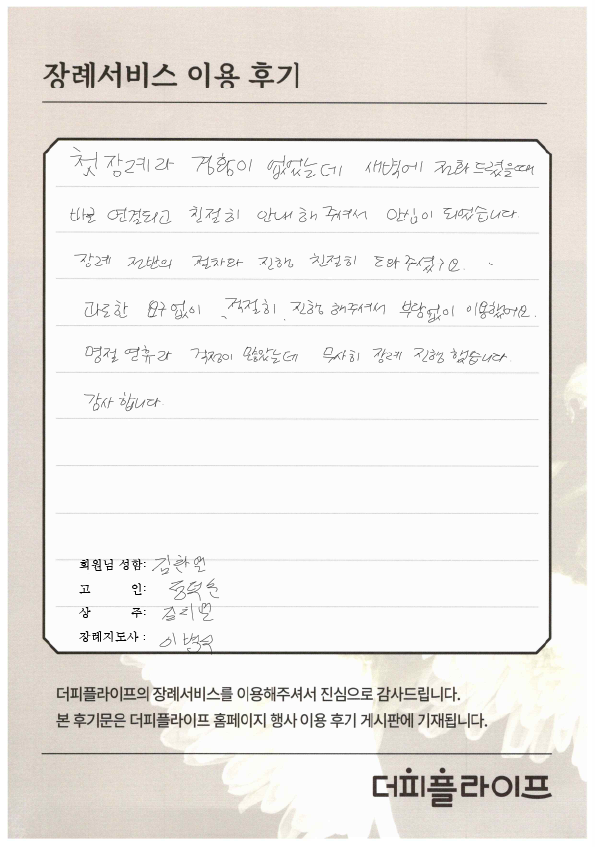 장례서비스 이용 후기
첫 장례라 경황이 없었는데 새벽에 전화 드렸을때
바로 연결되고 친절히 안내 해 주셔서 안심이 되었습니다.
장례 전반의 절차와 진행 친절히 도와주셨고요.
과도한 요구없이 적절히 진행 해주셔서 부담없이 이용했어요.
명절 연휴라 걱정이 많았는데 무사히 장례 진행 했습니다.
감사 합니다.
회원님 성함:
고 인:
상 주:
장례지도사 :
더피플라이프의 장례서비스를 이용해주셔서 진심으로 감사드립니다.
본 후기문은 더피플라이프 홈페이지 행사 이용 후기 게시판에 기재됩니다.
더피플라이프